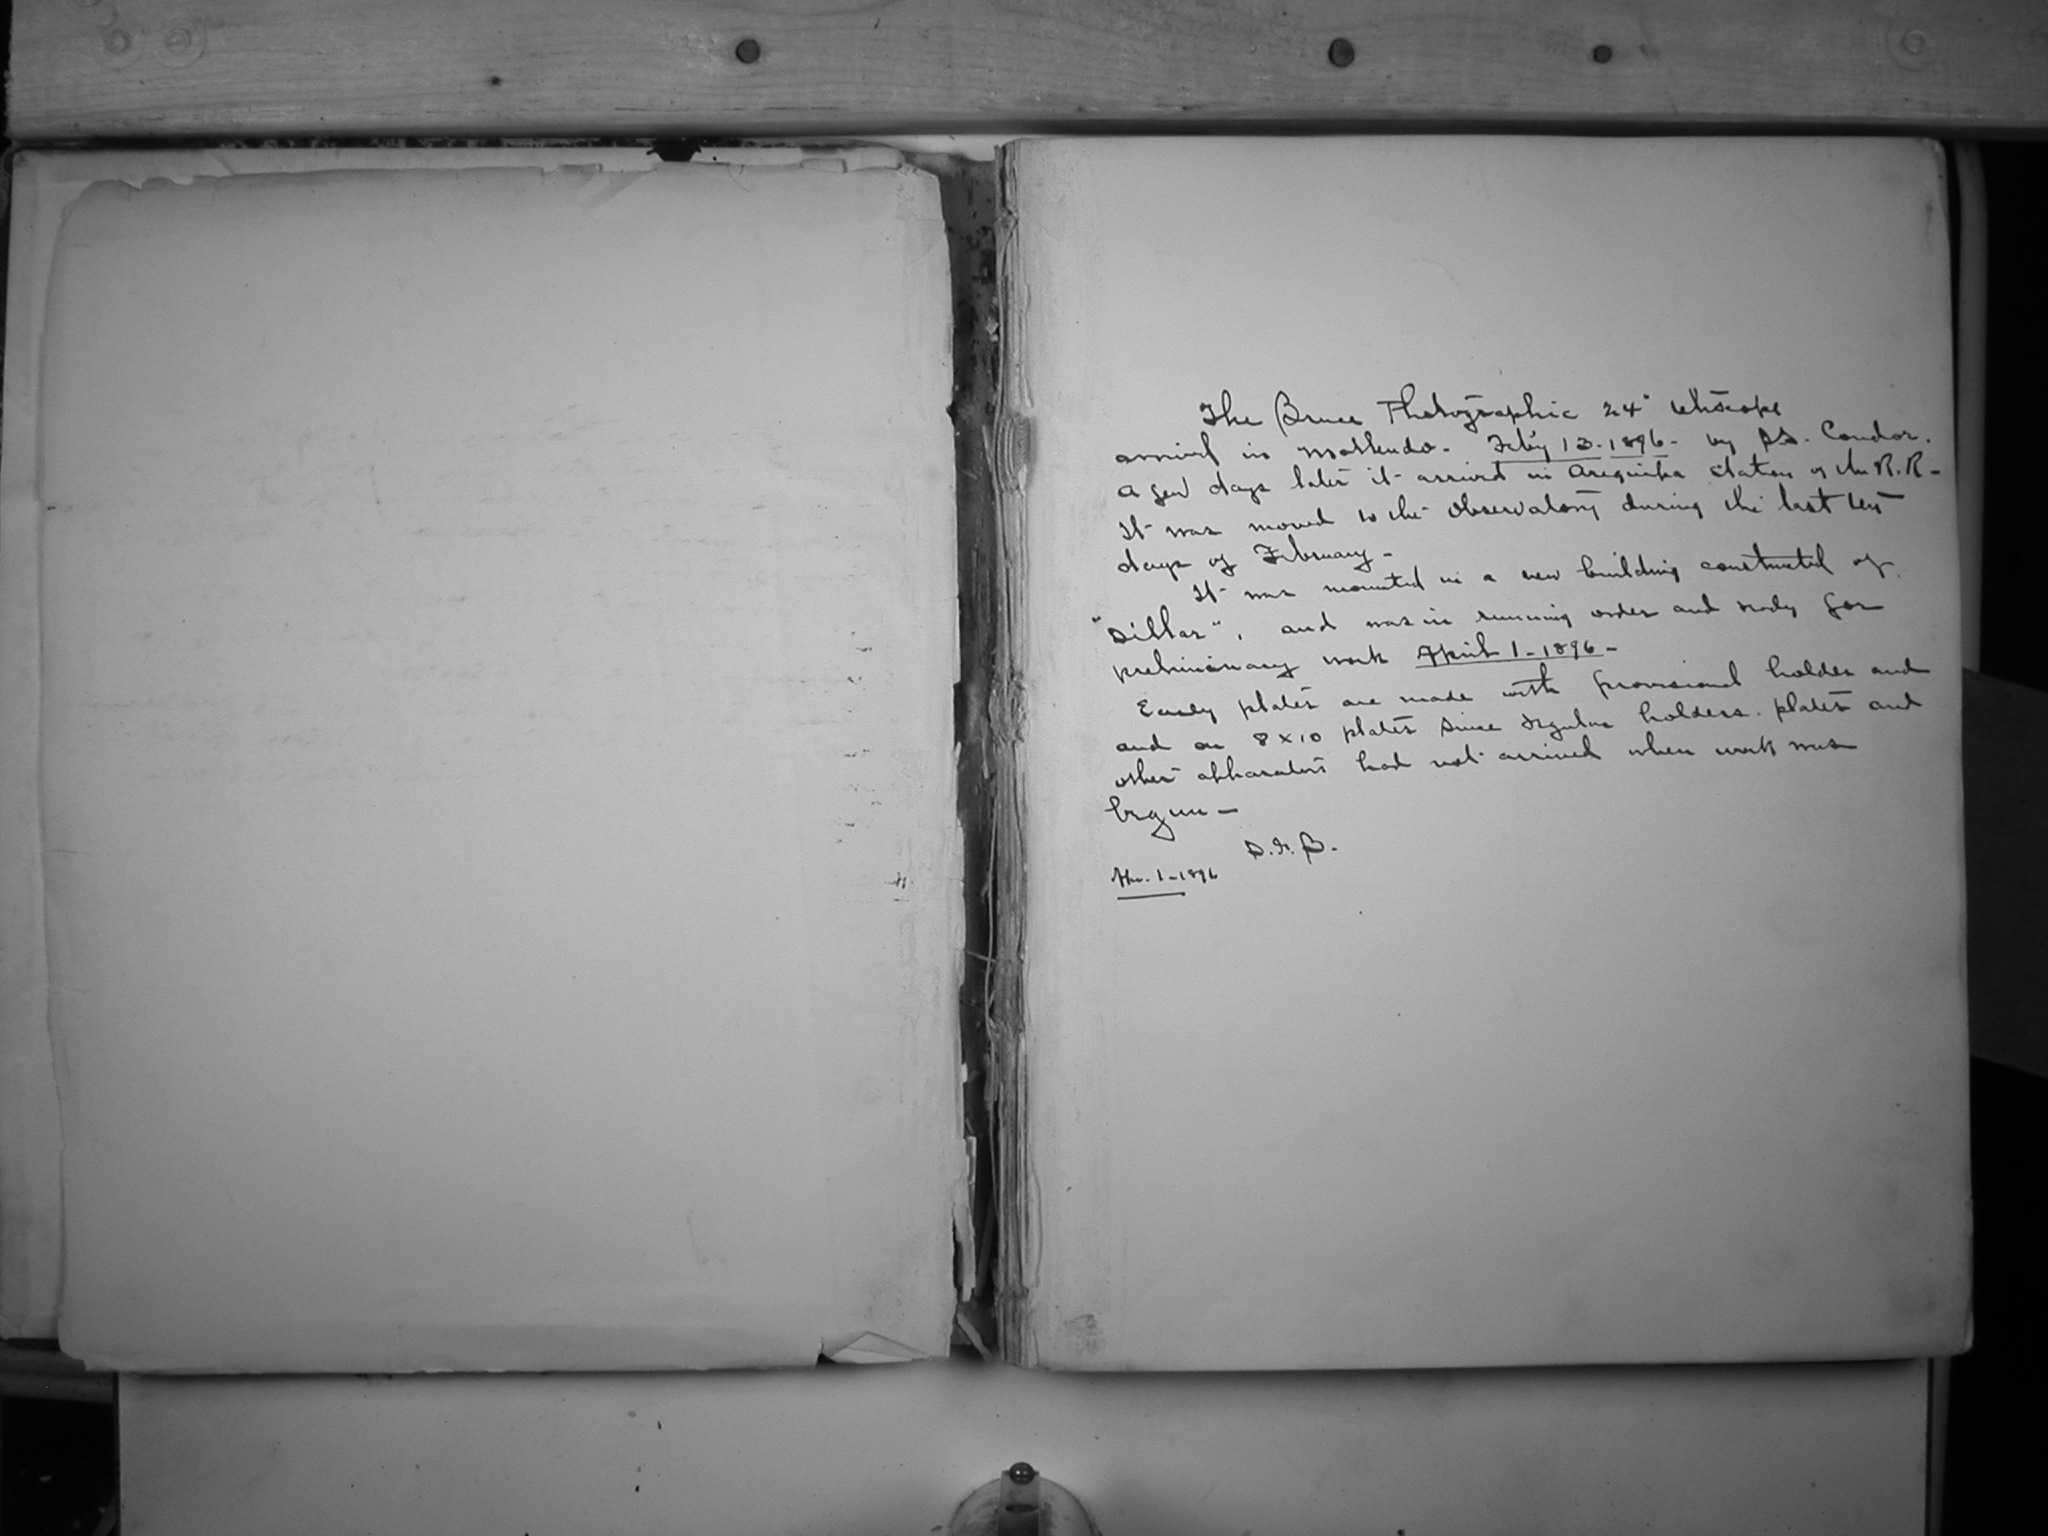 The Bruce Photographic 24" telescope
arrived in Mollendo - Feb'y 13 - 1896 - by SS. Condor.
A few days later it arrived in Arequipa station of the R.R -
It was moved to the Observatory during the last ten
days of February -
It was mounted in a new building constructed of
"Sillar", and was in running order and ready for
preliminary work April 1 - 1896 -
Early plates are made with provisional holder and
and on 8 x 10 plates since regular holders. plates and
other apparatus had not arrived when work was
begun -
S.I.B.
1 - 1896